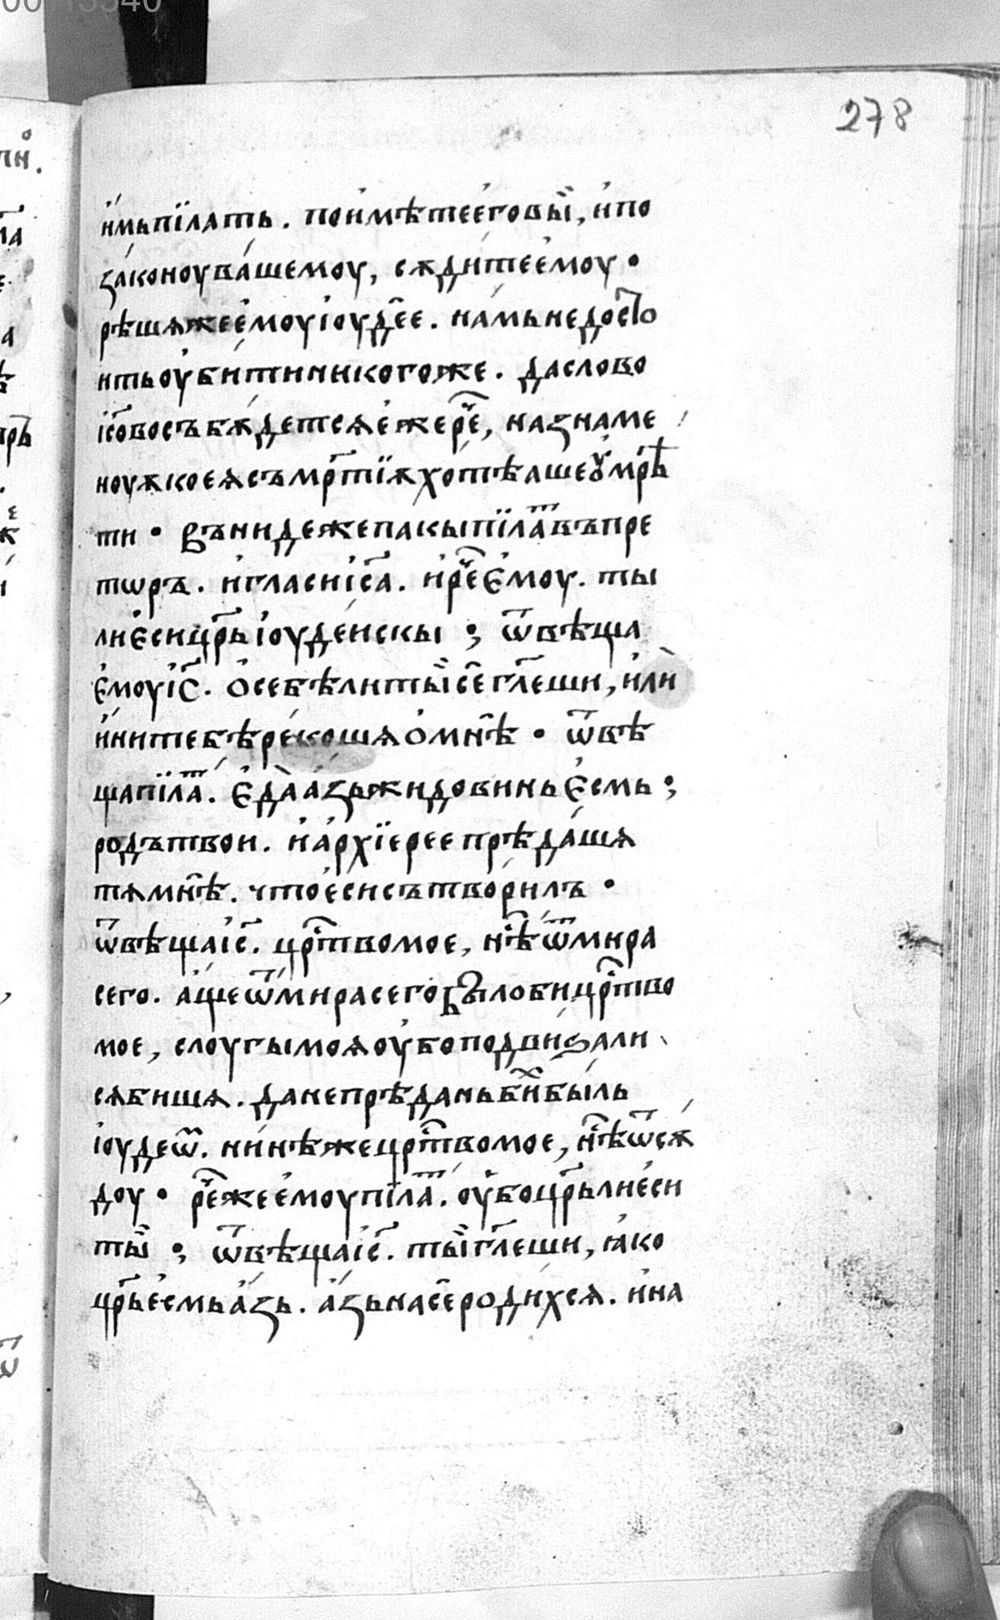 278
и́мь пїлать . пои́мѣте е́го вы̀ , и́ по
зако́ноу ва́шемоу , сѫди́те е́моу •
рѣшѧ же е́моу і҆оуде҆е . на́мь не досто
ить оу҆бити никого же . да слово
і҆со҃во съ бѫдетсѧ е҆же рече҇ , на знаме
ноуѫ коеѧ съмр҃тїѫ хо́тѣаше оу҆мрѣ
ти • вънидеже пакы пїла҇т въ пре
тѡръ . и҆ гласи і҆с҃а . и҆ рече҇ є҆моу . ты
ли є҆си цр҃ь і҆оуде́искы ; ѿвѣща
є҆моу і҆с҃ . ѡ҆ себѣ ли ты̀ се гл҃еши , и҆лѝ
и҆ни тебѣ реко́шѧ ѡ҆ мнѣ • ѿвѣ
ща пїла҇т . є҆да̀ а҆зь жидовинь є҆смь ;
родъ твои . и҆ а҆рхїерее прѣда́шѧ
тѧ мнѣ . что е҆си сътвори́лъ •
ѿвѣща і҆с҃ . цр҃тво мое , нѣ҇ ѿ мира
сего . а҆ще ѿ мира сего бы́ло би цр҃тво
мое , слоугы моѧ оу҆бо подвиѕали
сѧ бишѧ . да не прѣдань би҇х быль
і҆оудеѡ҇м . ни́нѣ же цр҃тво мое , нѣ҇ ѿсѫ
доу • рече҇ же е҆моу пїла҇т . оу҆бо цр҃ь ли е҆си
ты̀ ; ѿвѣща і҆с҃ . ты̀ гл҃еши , ꙗ҆ко
цр҃ь е҆смь а҆зь . а҆зь на се родихсѧ . и҆ на